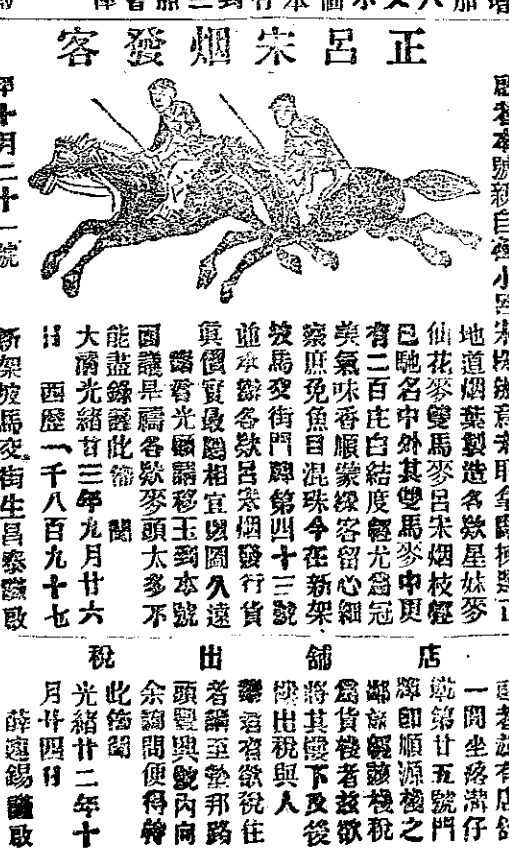 正呂宋烟發客
啟者本號親自
地道烟葉製造各欵星妹麥
仙花麥雙馬麥呂宋烟枝經
已馳名中外其雙馬麥中更
有二百庄白結度經尤為冠
美氣味香順蒙綵客留心細
察庶免魚目混珠今在新架
坡馬交街門牌第四十三號
並本辦各欵呂宋烟發行貨
真價實最勝相宜以圖久遠
光顧請移玉到本號
面議是禱各欵麥頭太多不
能盡錄謹此佈聞
大清光緒廿三年九月廿六
日 西歷一千八百九十七
年十月二十一號
新架坡馬交街生昌泰謹啟
店舖出稅
啟者茲有店舖
一間坐落溝仔
墘第廿五號門
牌即順源棧之
鄰茲經該棧稅
為貨棧者茲欲
將其樓下及後
樓出稅與人
君有欲稅住
者請至墊邦路
頭豐興號內向
余詢問便得轉
此佈聞
光緒廿二年十
月廿四日
薛遠錫謹啟